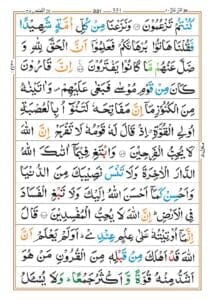 كُنْتُمْ تَزْعُمُوْنَ ۝ وَنَزَعْنَا مِنْ كُلِّ اُمَّةٍ شَهِيْدًا
فَقُلْنَا هَاتُوْا بُرْهَانَكُمْ فَعَلِمُوْٓا اَنَّ الْحَقَّ لِلّٰهِ وَ
ضَلَّ عَنْهُمْ مَّا كَانُوْا يَفْتَرُوْنَ ۝ اِنَّ قَارُوْنَ
كَانَ مِنْ قَوْمِ مُوْسٰى فَبَغٰى عَلَيْهِمْ ۪ وَاٰتَيْنٰهُ
مِنَ الْكُنُوْزِ مَآ اِنَّ مَفَاتِحَهٗ لَتَنُوْٓاُ بِالْعُصْبَةِ
اُولِي الْقُوَّةِ ۗ اِذْ قَالَ لَهٗ قَوْمُهٗ لَا تَفْرَحْ اِنَّ اللّٰهَ
لَا يُحِبُّ الْفَرِحِيْنَ ۝ وَابْتَغِ فِيْمَآ اٰتٰىكَ اللّٰهُ
الدَّارَ الْاٰخِرَةَ وَلَا تَنْسَ نَصِيْبَكَ مِنَ الدُّنْيَا
وَاَحْسِنْ كَمَآ اَحْسَنَ اللّٰهُ اِلَيْكَ وَلَا تَبْغِ الْفَسَادَ
فِي الْاَرْضِ ۗ اِنَّ اللّٰهَ لَا يُحِبُّ الْمُفْسِدِيْنَ ۝ قَالَ
اِنَّمَآ اُوْتِيْتُهٗ عَلٰى عِلْمٍ عِنْدِيْ ۗ اَوَلَمْ يَعْلَمْ اَنَّ
اللّٰهَ قَدْ اَهْلَكَ مِنْ قَبْلِهٖ مِنَ الْقُرُوْنِ مَنْ هُوَ
اَشَدُّ مِنْهُ قُوَّةً وَّاَكْثَرُ جَمْعًا ۗ وَلَا يُسْـَٔلُ